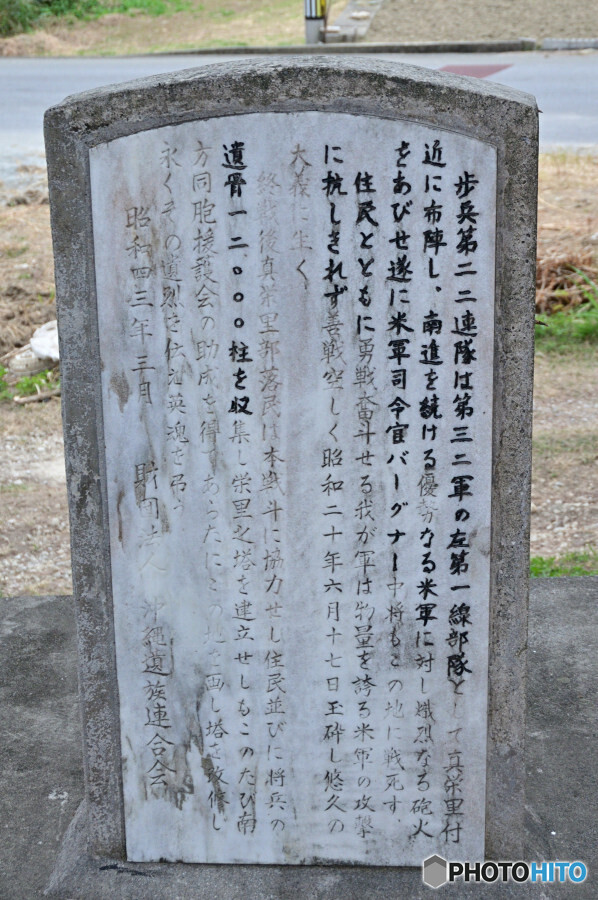 歩兵第二二連隊は第三二軍の左第一線部隊として真栄里付
近に布陣し、南進を続ける優勢なる米軍に対し熾烈なる砲火
をあびせ遂に米軍司令官バーグナー中将もこの地に戦死す、
住民とともに勇戦奮斗せる我が軍は物量を誇る米軍の攻撃
に抗しきれず善戦空しく昭和二十年六月十七日玉砕し悠久の
大義に生く
終戦後真栄里部落民は本戦斗に協力せし住民並びに将兵の
遺骨一二〇〇〇柱を収集し栄里之塔を建立せしもこのたび南
方同胞援護会の助成を得てあらたにこの地を画し塔を改修し
永くその遺烈を伝え英魂を弔う
昭和四三年三月 財団法人 沖縄遺族連合会
PHOTOHITO